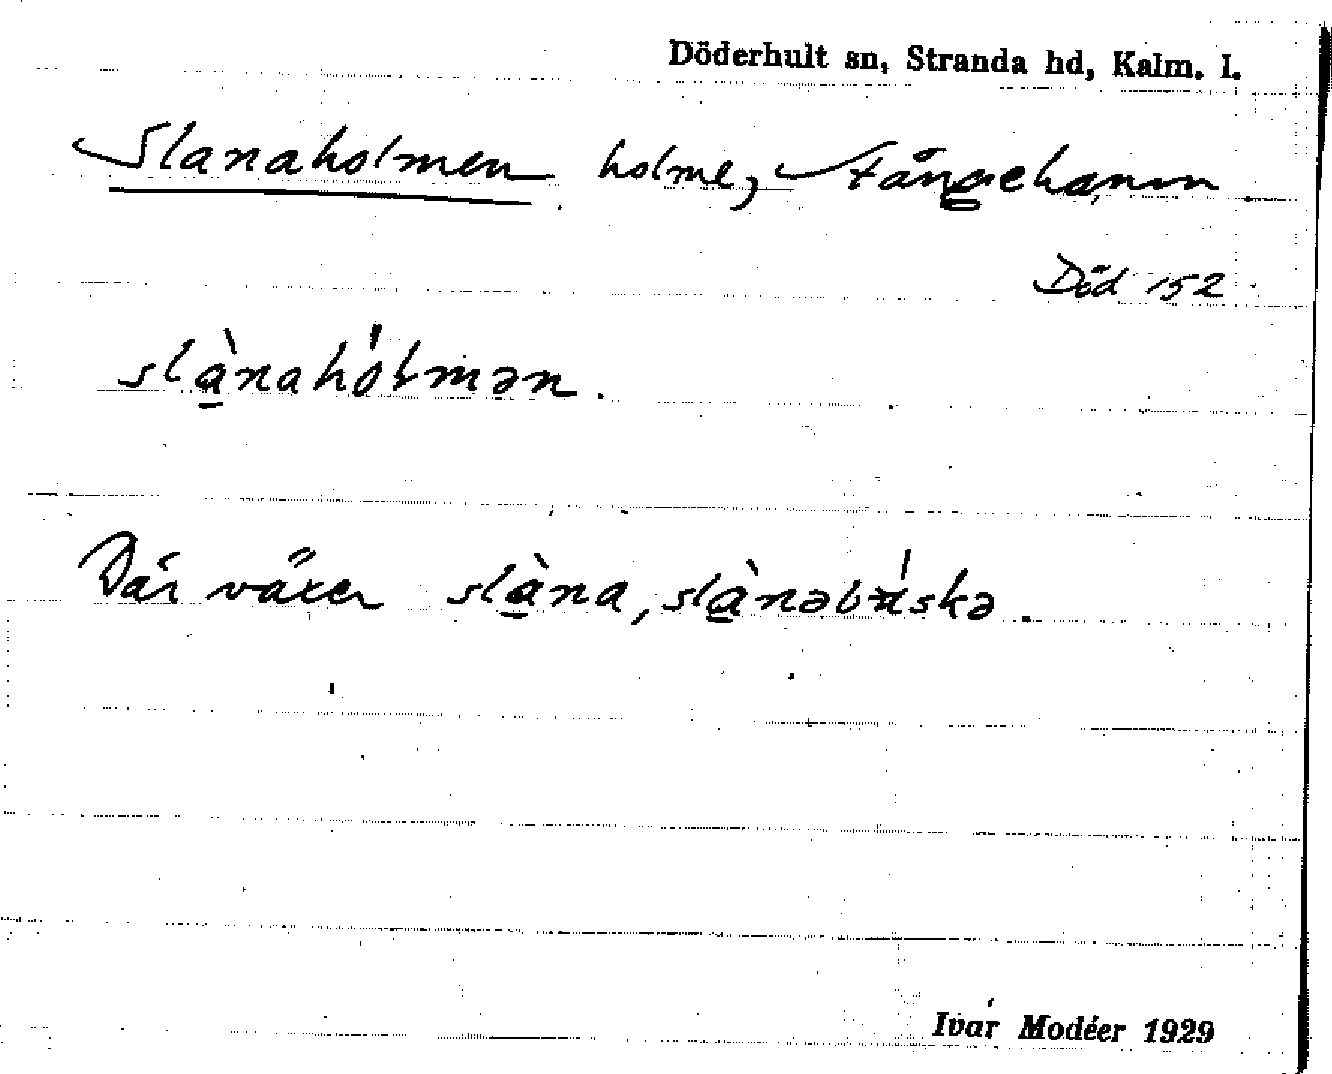 Döderhult sn, Stranda hd, Kalm. l.
Slanaholmen holme, Stångehamn
Död 152
slànahólmən.
Där växer slàna, slànəbúskə.
Ivar Modéer 1929